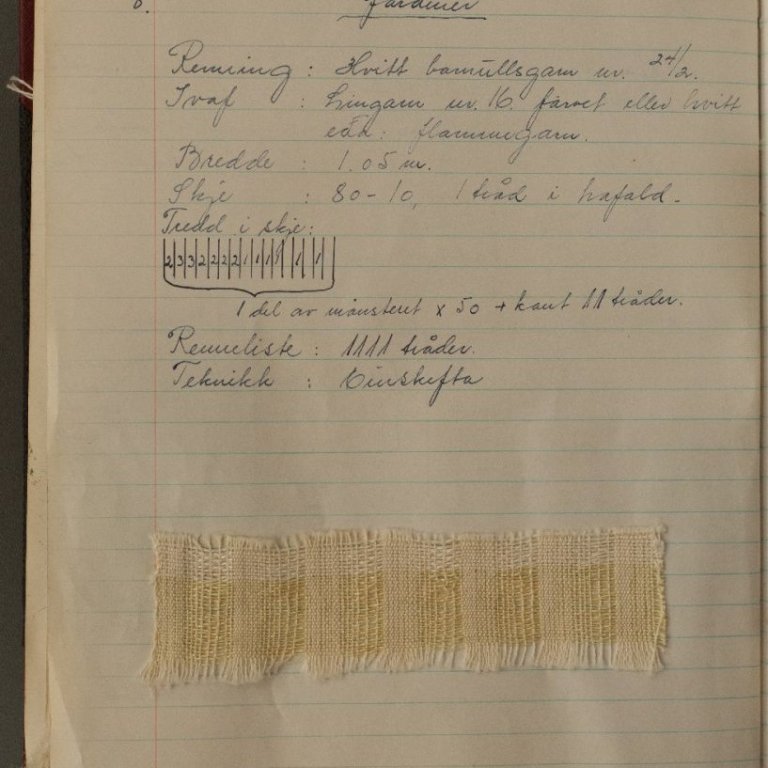 6. Gardiner
Renning : Hvitt bomullsgarn nr. 24/2.
Ivaf : Lingarn nr. 16. farvet eller hvitt
eda: flammegarn.
Bredde : 1.05 m.
Skje : 80-10, 1 tråd i hafald.
Tredd i skje:
2 3 3 2 2 2 2 1 1 1 1 1 1
1 del av mønsteret x 50 + kant 11 tråder.
Renneliste : 1111 tråder.
Teknikk : Einskefta